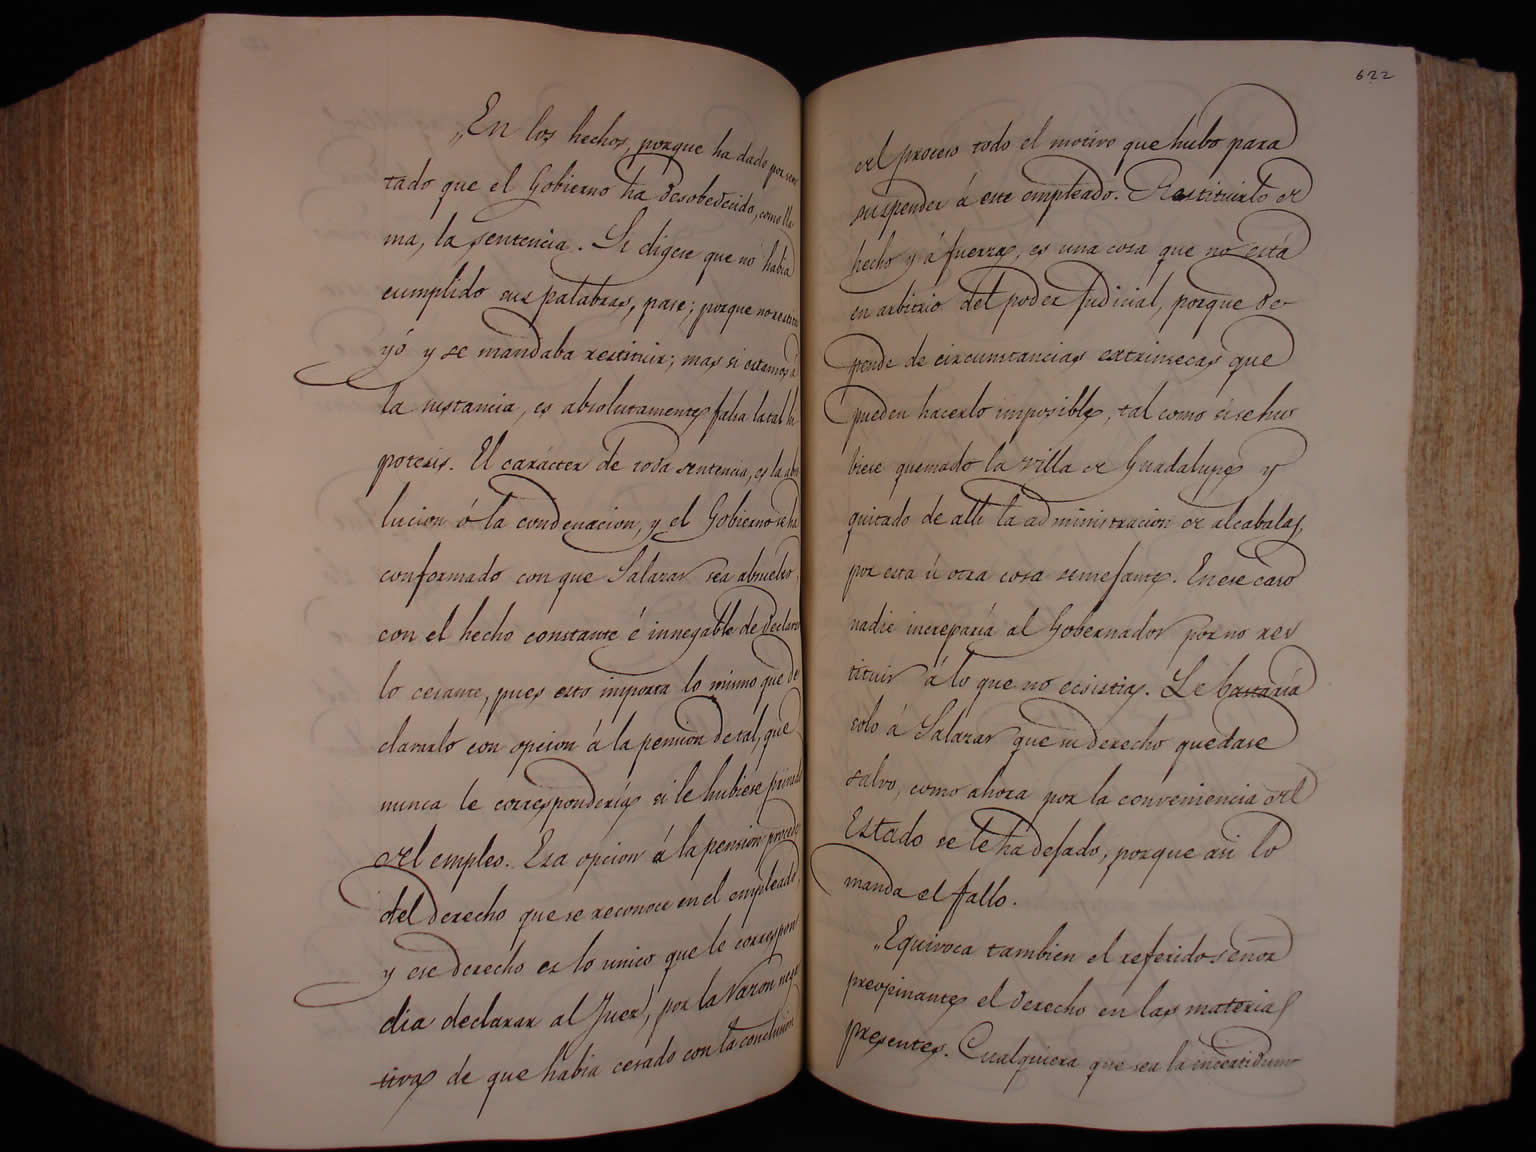 „En los hechos, porque ha dado por sen
tado que el Gobierno ha desobedecido, como lla
ma, la sentencia. Si digere que no habia
cumplido sus palabras, pase; porque no restitu
yó y se mandaba restituir; mas si estamos á
la sustancia, es absolutamente falsa la tal hi
potesis. El carácter de toda sentencia, es la abso
lucion ó la condenacion, y el Gobierno se ha
conformado con que Salazar sea absuelto,
con el hecho constante é innegable de declarar
lo cesante, pues esto importa lo mismo que de
clararlo con opcion á la pension de tal, que
nunca le corresponderia si le hubiese privado
del empleo. Esa opcion á la pension procede
del derecho que se reconoce en el empleado,
y ese derecho es lo unico que le correspon
dia declarar al Juez, por la razon nega
tiva de que habia cesado con la conclusion
622
del proceso todo el motivo que hubo para
suspender á este empleado. Restituirlo de
hecho y á fuerza, es una cosa que no está
en arbitrio del poder Judicial, porque de-
pende de circunstancias extrinsecas que
pueden hacerlo imposible, tal como si se hu
biese quemado la villa de Guadalupe y
quitado de alli la administracion de alcabalas,
por esta ú otra cosa semejante. En ese caso
nadie increparía al Gobernador por no res
tituir á lo que no ecsistia. Le bastaría
solo á Salazar que su derecho quedase
salvo, como ahora por la conveniencia del
Estado se le ha dejado, porque asi lo
manda el fallo.
„Equivoca tambien el referido señor
preopinante el derecho en las materias
presentes. Cualquiera que sea la incertidum